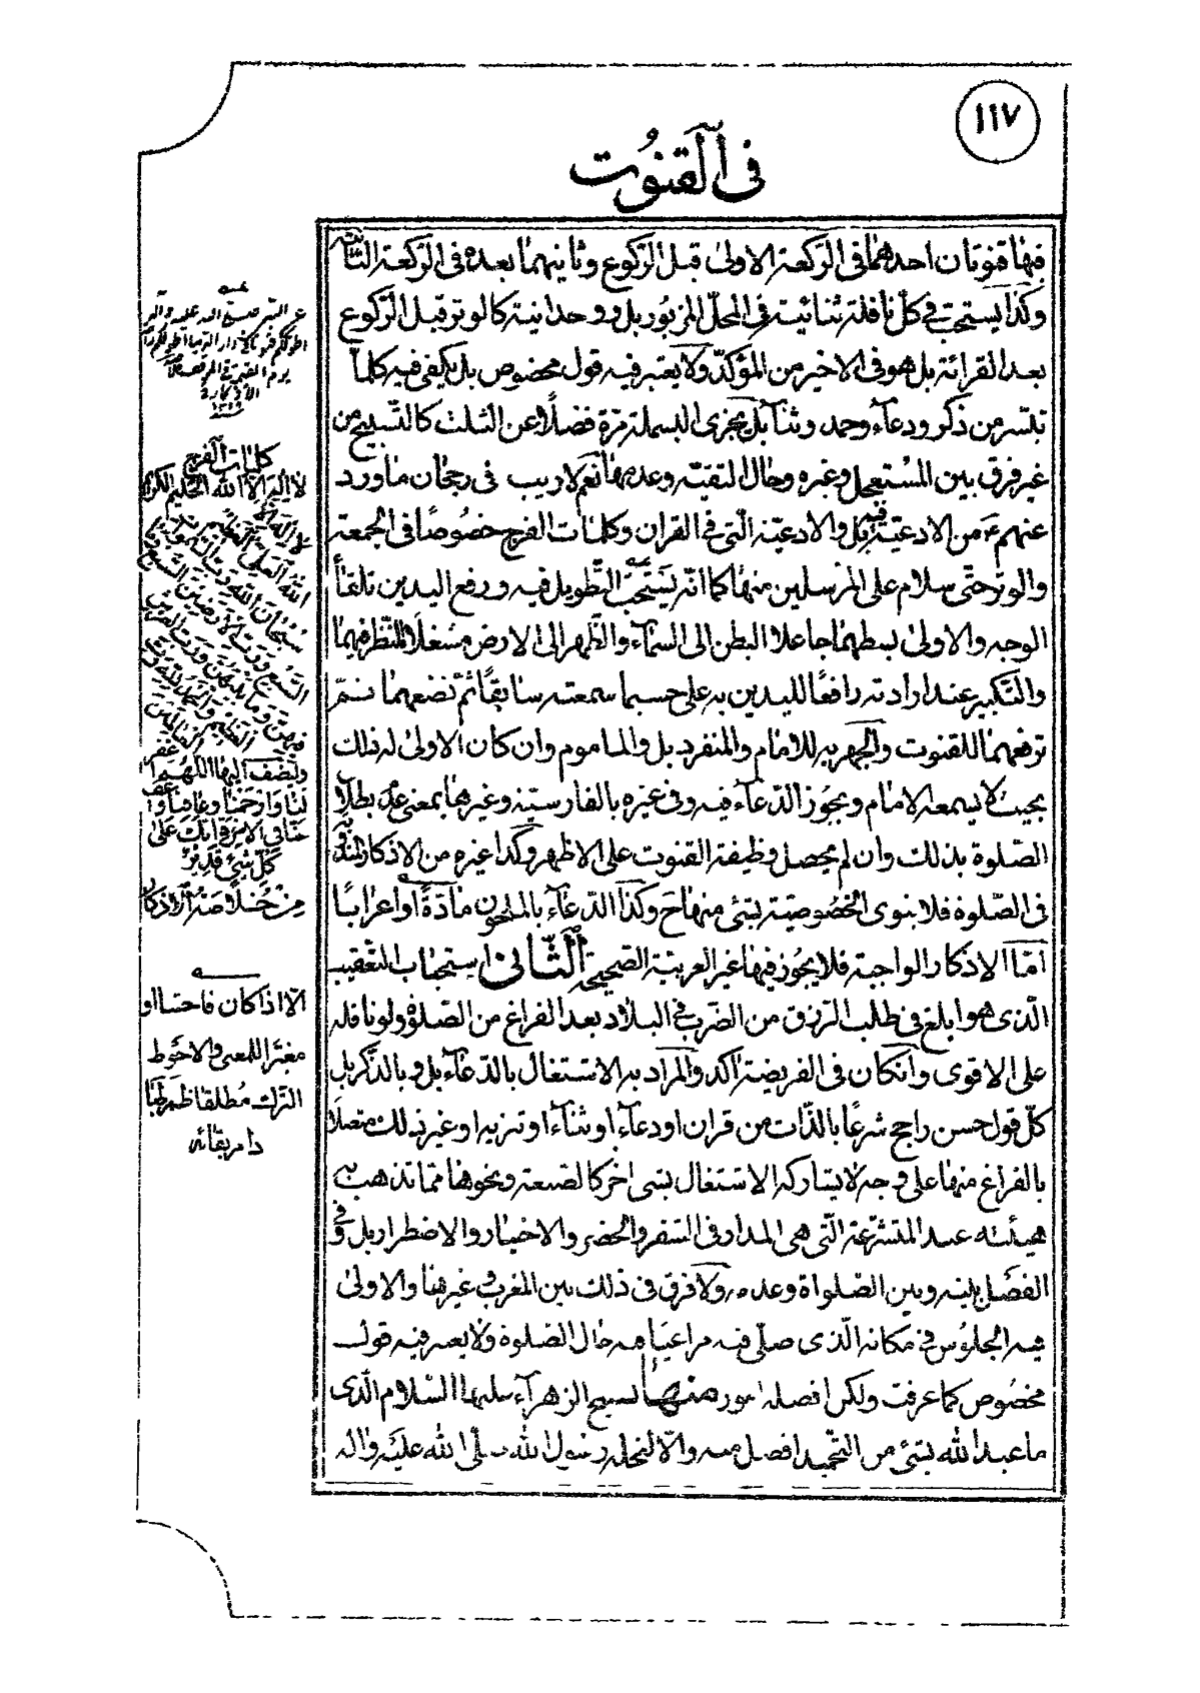 ١١٧
فى القنوت
فيها قنوتان احدهما فى الركعة الاولى قبل الركوع وثانيهما بعده فى الركعة الثانية
وكذا يستحب فى كل نافلة ثنائية فى المحل المزبور بل ووحدانية كالوتر قبل الركوع
بعد القرائة بل هو فى الاخير من المؤكد ولا يعتبر فيه قول مخصوص بل يكفى فيه كلما
تيسر من ذكر ودعاء وحمد وثنا بل يجزى البسملة مرة فضلا عن الثلث كالتسبيح من
غير فرق بين المستعجل وغيره وحال التقية وعدمها نعم لا ريب فى رجحان ما ورد
عنهم ع من الادعية فيه بل والادعية التى فى القران وكلمات الفرج خصوصا فى الجمعة
والوتر حتى سلام على المرسلين منها كما انه يستحب التطويل فيه ورفع اليدين تلقاء
الوجه والاولى بسطهما جاعلا البطن الى السماء والظهر الى الارض مشغلا للنظر فيهما
والتكبير عند ارادته رافعا لليدين به على حسبما سمعته سابقا ثم تضعهما ثم
ترفعهما للقنوت والجهر به للامام والمنفرد بل والماموم وان كان الاولى له ذلك
بحيث لا يسمعه الامام ويجوز الدعاء فيه وفى غيره بالفارسية وغيرها بمعنى عدم بطلان
الصلوة بذلك وان لم يحصل وظيفة القنوت على الاظهر وكذا غيره من الاذكار المندوبة
فى الصلوة فلا ينوى الخصوصية بشئ منها ح وكذا الدعاء بالملحون مادة او اعرابا
اما الاذكار الواجبة فلا يجوز فيها غير العربية الصحيح الثانى استحباب التعقيب
الذى هو ابلغ فى طلب الرزق من الضرب فى البلاد بعد الفراغ من الصلوة ولو نافلة
على الاقوى وان كان فى الفريضة اكد والمراد به الاشتغال بالدعاء بل وبالذكر بل
كل قول حسن راجح شرعا بالذات من قران او دعاء او ثناء او تنزيه او غير ذلك متصلا
بالفراغ منها على وجه لا يشاركه الاشتغال بشئ اخر كالصنعة ونحوها مما تذهب به
هيئته عند المتشرعة التى هى المدار فى السفر والحضر والاختيار والاضطرار بل وفى
الفصل بينه وبين الصلواة وعدمه ولا فرق فى ذلك بين المغرب وغيرها والاولى
فيه الجلوس فى مكانه الذى صلى فيه مراعيا فيه حال الصلوة ولا يعتبر فيه قول
مخصوص كما عرفت ولكن افضله امور منها تسبيح الزهراء سليها السلام الذى
ما عبد الله بشئ من التحميد افضل منه والا لنحله رسول الله صلى الله عليه واله
عن النبى صلى الله عليه وآله
اطولكم قنوتا فى دار الدنيا اطولكم راحة
يوم القيمة فى الموقف
كلمات الفرج
لا اله الا الله الحليم الكريم
لا اله الا
الله العلى العظيم
سبحان الله رب السموات
السبع ورب الارضين السبع وما
فيهن وما بينهن ورب العرش
العظيم والحمد لله رب
العالمين
ويضف اليها اللهم اغفر
لنا وارحمنا وعافنا واعف
عنا فى الاخرة انك على
كل شئ قدير
من خلاصة الاذكار
الا اذا كان فاحشا او
مغيرا للمعنى والاحوط
الترك مطلقا
دام بقائه